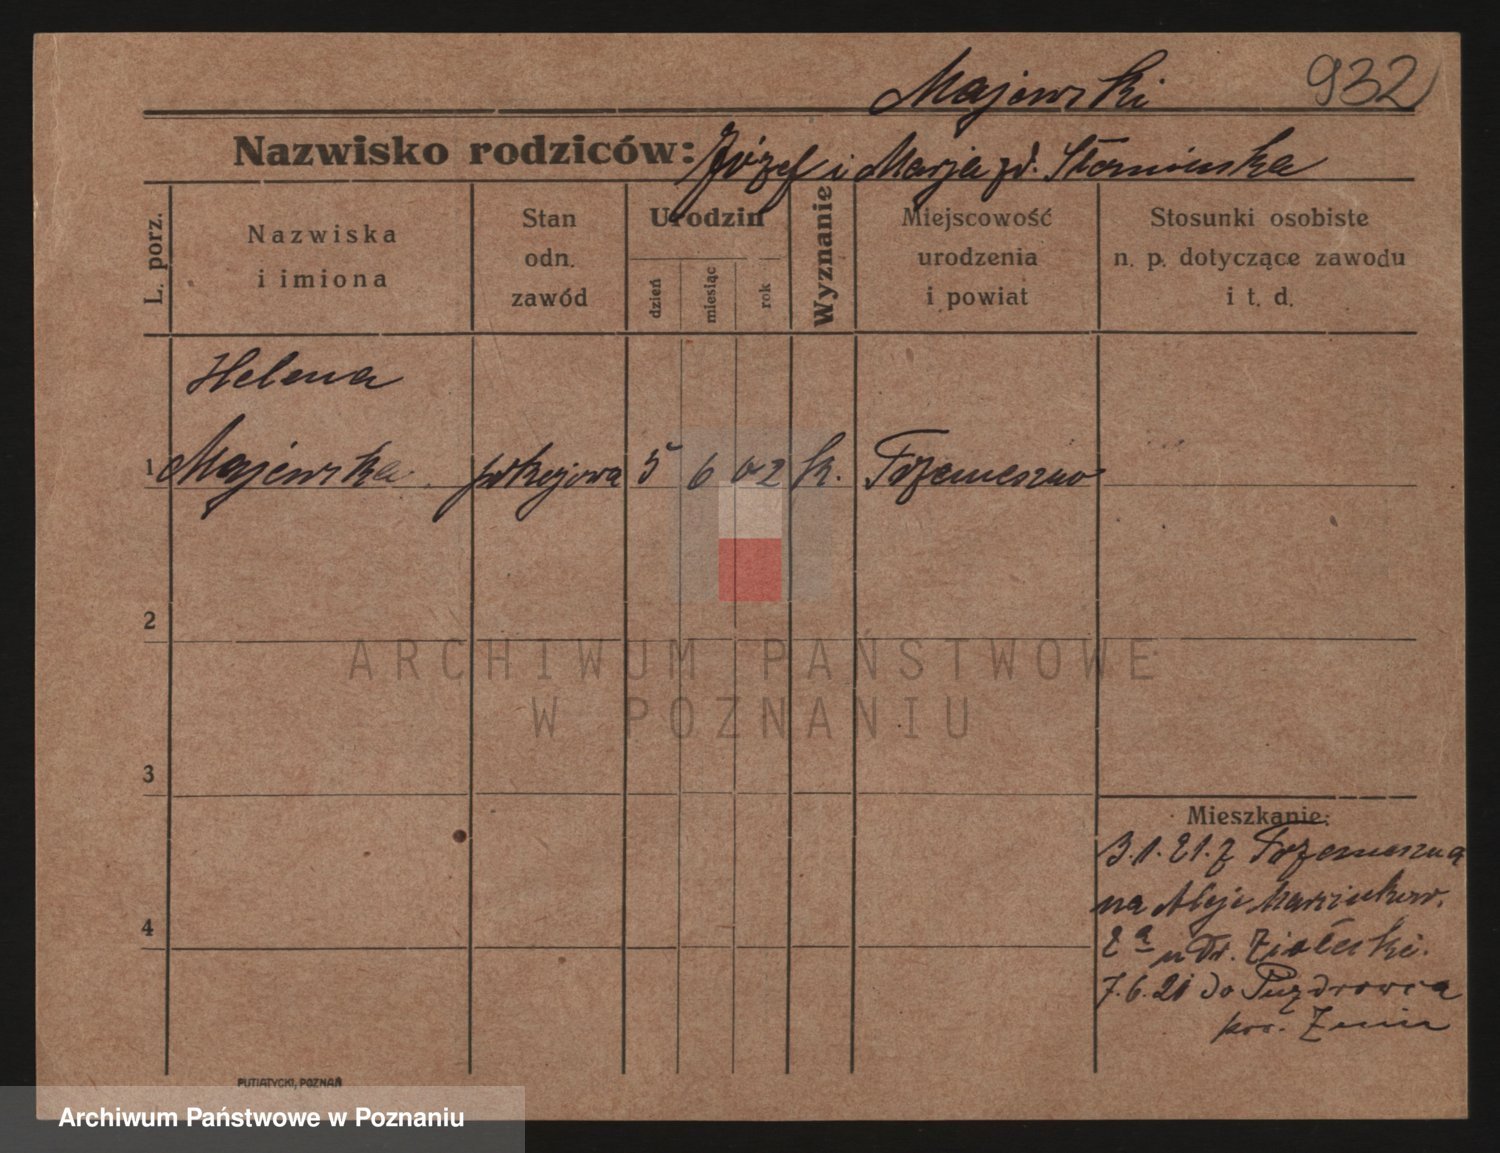 Majewski 932
Nazwisko rodziców: Józef i Marja zd. Słomińska
L. porz.
Nazwiska
i imiona
Stan
odn.
zawód
Urodzin
dzień
miesiąc
rok
Wyznanie
Miejscowość
urodzenia
i powiat
Stosunki osobiste
n. p. dotyczące zawodu
i t. d.
Helena
1 Majewska pokojowa 5 6 02 k. Trzemeszno
2
ARCHIWUM PAŃSTWOWE
W POZNANIU
3
Mieszkanie:
3.1.21. z Trzemeszna
na Aleje Marcinkow.
2a u Dr. Ziołecki.
4
7.6.21 do Puzdrowca
pow. Żnin
PUTIATYCKI, POZNAŃ
Archiwum Państwowe w Poznaniu